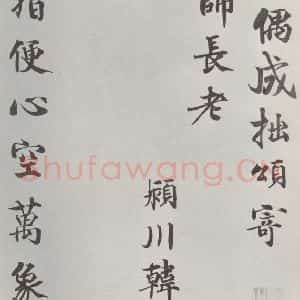 偶成拙頌寄
師長老
潁川韓
指便心空萬象
shufawang.cn